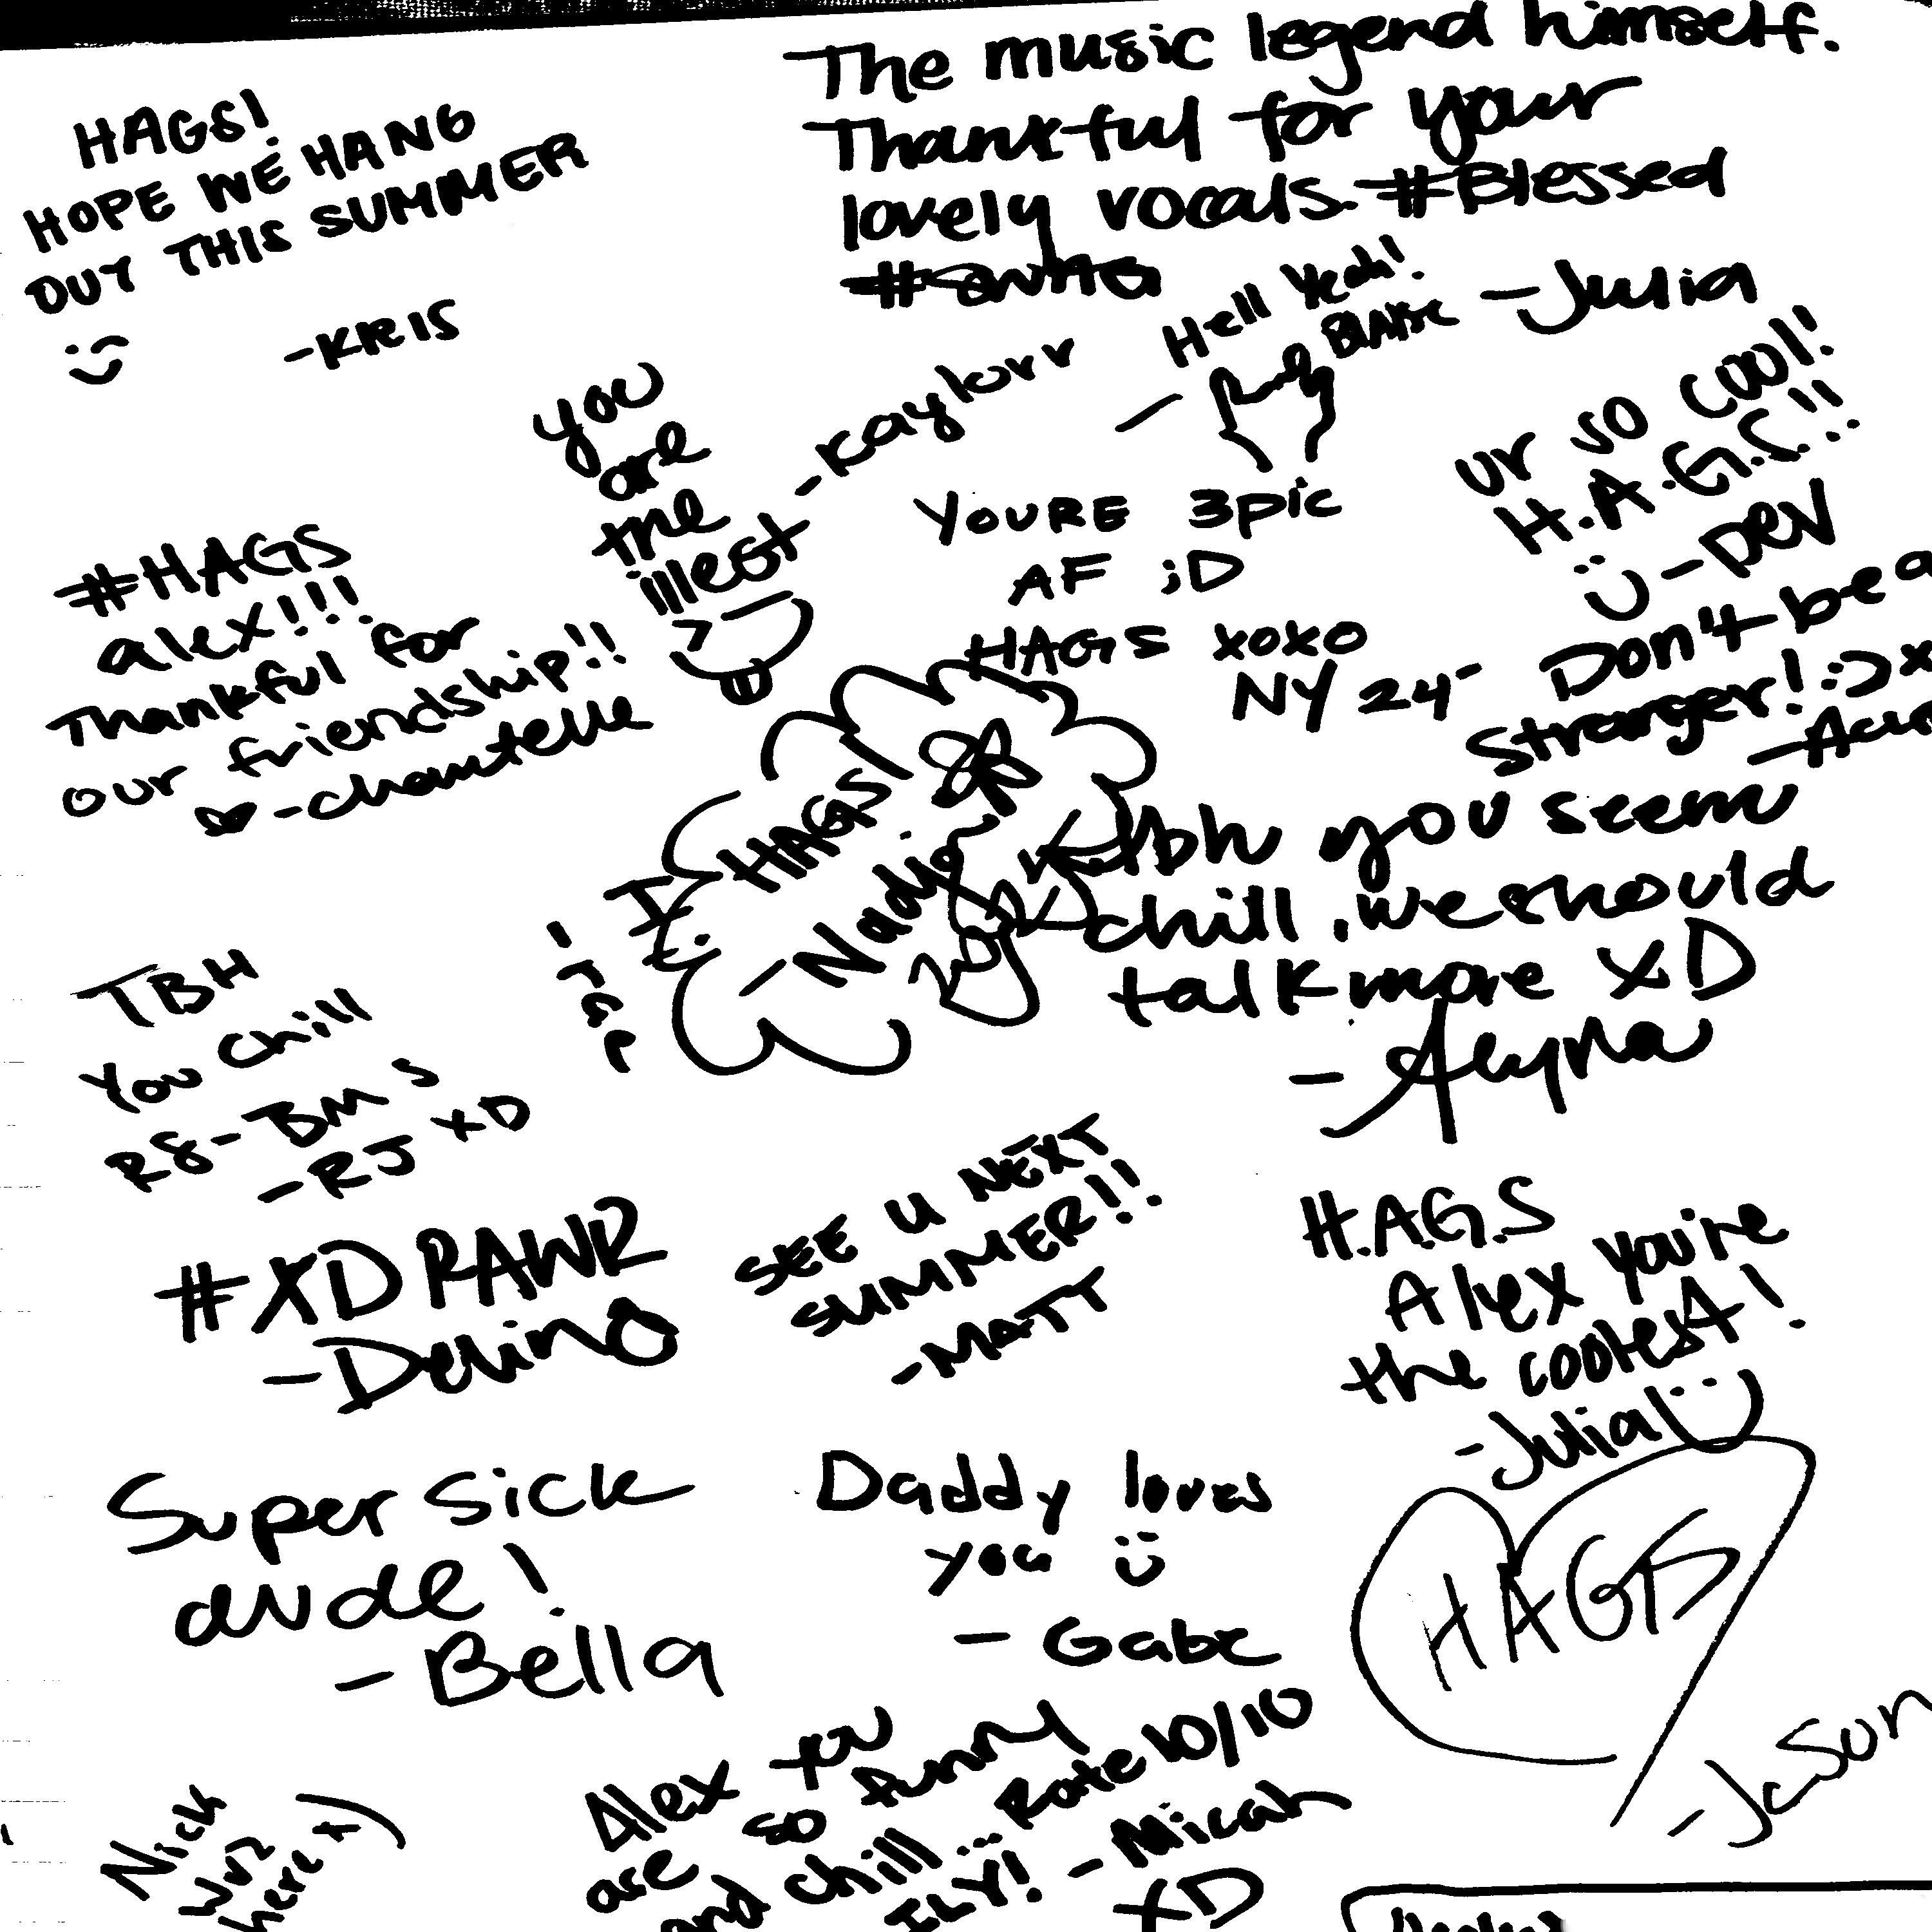 The music legend himself.
Thankful for your
lovely vocals. #Blessed
#SWAG
-Julia
HAGS!
HOPE WE HANG
OUT THIS SUMMER
:)
-KRIS
Hell Yeah!
you
are
the
illest
-Kaylorr
YOURE 3pic
AF ;D
HAGS XOXO
NY 24-
ur so cool!
H.A.G.S.!!
:) -DEV
#HAGS
alex!!!
Thankful for
our friendship!!
-chantelle
Don't be a
Stranger! :)
HAGS
-Nadia
tbh you seem
chill. we should
talk more XD
-Alyna
TBH
You chill
R8-BMS
-RJ XD
#XD RAWR
SEE U NEXT
SUMMER!!
-MATT
H.A.G.S
Alex you're
the coolest!
-Julia :)
Super sick
dude!
-Bella
Daddy loves
you :)
-Gabe
HAGS
Nick
wuz
here
Alex you
are so funny
and chill... Rate 10/10
ILY! -Micah
XD